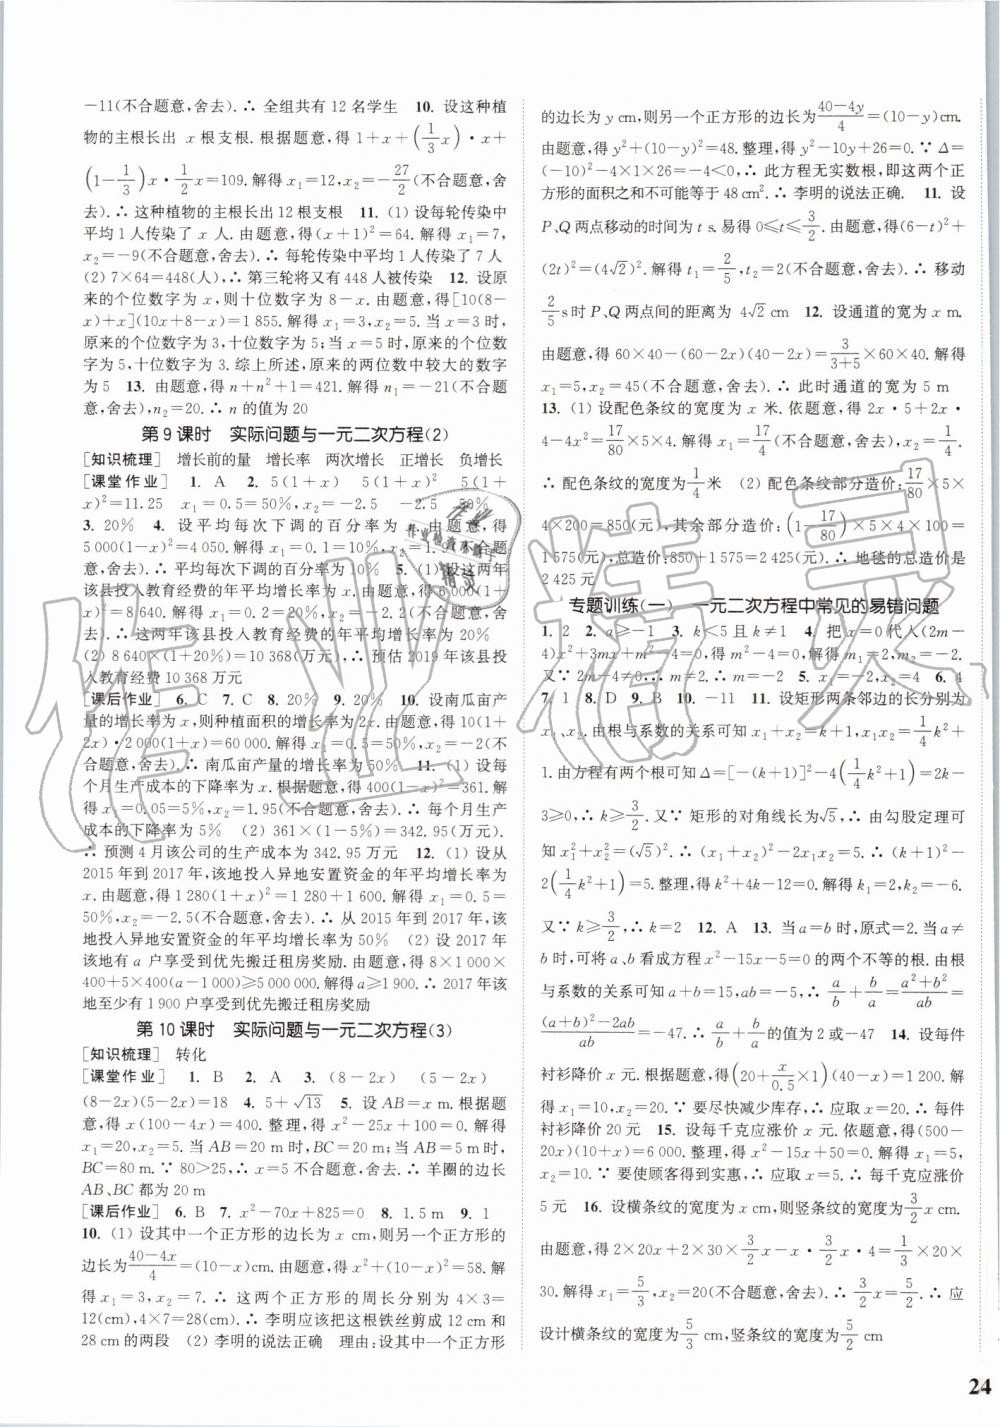 -11(不合题意,舍去).∴ 全组共有 12 名学生　10. 设这种植
物的主根长出 x 根支根. 根据题意,得 1+x+(1/3 x)·x+
(1-1/3)x·1/2 x=109. 解得 x₁=12,x₂=-27/2(不合题意,舍
去).∴ 这种植物的主根长出 12 根支根　11. (1) 设每轮传染中
平均 1 人传染了 x 人. 由题意,得 (x+1)²=64. 解得 x₁=7,
x₂=-9(不合题意,舍去).∴ 每轮传染中平均 1 人传染了 7 人
(2) 7×64=448(人),∴ 第三轮将又有 448 人被传染　12. 设原
来的个位数字为 x,则十位数字为 8-x. 由题意,得[10(8-
x)+x](10x+8-x)=1 855. 解得 x₁=3,x₂=5. 当 x=3 时,
原来的个位数字为 3,十位数字为 5;当 x=5 时,原来的个位数
字为 5,十位数字为 3. 综上所述,原来的两位数中较大的数字
为 5　13. 由题意,得 n+n²+1=421. 解得 n₁=-21(不合题
意,舍去),n₂=20.∴ n 的值为 20
第 9 课时　实际问题与一元二次方程(2)
[知识梳理]　增长前的量　增长率　两次增长　正增长　负增长
[课堂作业]　1. A　2. 5(1+x)　5(1+x)²　5(1+
x)²=11.25　x₁=0.5=50%,x₂=-2.5　-2.5　50%
3. 20%　4. 设平均每次下调的百分率为 x. 由题意,得
5 000(1-x)²=4 050. 解得 x₁=0.1=10%,x₂=1.9(不合题
意,舍去).∴ 平均每次下调的百分率为 10%　5. (1) 设这两年
该县投入教育经费的年平均增长率为 x. 根据题意,得 6 000(1+
x)²=8 640. 解得 x₁=0.2=20%,x₂=-2.2(不合题意,舍
去).∴ 这两年该县投入教育经费的年平均增长率为 20%
(2) 8 640×(1+20%)=10 368(万元),∴ 预估 2019 年该县投
入教育经费 10 368 万元
[课后作业]　6. C　7. C　8. 20%　9. 20%　10. 设南瓜亩产
量的增长率为 x,则种植面积的增长率为 2x. 由题意,得 10(1+
2x)·2 000(1+x)=60 000. 解得 x₁=0.5=50%,x₂=-2(不合
题意,舍去).∴ 南瓜亩产量的增长率为 50%　11. (1) 设每
个月生产成本的下降率为 x. 根据题意,得 400(1-x)²=361. 解
得 x₁=0.05=5%,x₂=1.95(不合题意,舍去).∴ 每个月生产
成本的下降率为 5%　(2) 361×(1-5%)=342.95(万元),
∴ 预测 4 月该公司的生产成本为 342.95 万元　12. (1) 设从
2015 年到 2017 年,该地投入异地安置资金的年平均增长率为
x. 由题意,得 1 280(1+x)²=1 280+1 600. 解得 x₁=0.5=
50%,x₂=-2.5(不合题意,舍去).∴ 从 2015 年到 2017 年,该
地投入异地安置资金的年平均增长率为 50%　(2) 设 2017 年
该地有 a 户享受到优先搬迁租房奖励. 由题意,得 8×1 000×
400+5×400(a-1 000)≥5 000 000. 解得 a≥1 900.∴ 2017 年该
地至少有 1 900 户享受到优先搬迁租房奖励
第 10 课时　实际问题与一元二次方程(3)
[知识梳理]　转化
[课堂作业]　1. B　2. A　3. (8-2x)　(5-2x)
(8-2x)(5-2x)=18　4. 5+√13　5. 设 AB=x m. 根据题
意,得 x(100-4x)=400. 整理,得 x²-25x+100=0. 解得
x₁=20,x₂=5. 当 AB=20 m 时,BC=20 m;当 AB=5 m 时,
BC=80 m.∵ 80>25,∴ x=5 不合题意,舍去.∴ 羊圈的边长
AB、BC 都为 20 m
[课后作业]　6. B　7. x²-70x+825=0　8. 1.5 m　9. 1
10. (1) 设其中一个正方形的边长为 x cm,则另一个正方形的
边长为(40-4x)/4=(10-x)cm. 由题意,得 x²+(10-x)²=58.
解得 x₁=3,x₂=7.∴ 这两个正方形的周长分别为 4×3=
12(cm),4×7=28(cm).∴ 李明应该把这根铁丝剪成 12 cm 和
28 cm 的两段　(2) 李明的说法正确　理由:设其中一个正方形
的边长为 y cm,则另一个正方形的边长为(40-4y)/4=(10-y)cm.
由题意,得 y²+(10-y)²=48. 整理,得 y²-10y+26=0.∵ Δ=
(-10)²-4×1×26=-4<0,∴ 此方程无实数根,即这两个正
方形的面积之和不可能等于 48 cm².∴ 李明的说法正确.　11. 设
P、Q 两点移动的时间为 t s. 易得 0≤t≤3/2. 由题意,得(6-t)²+
(2t)²=(4√2)². 解得 t₁=2/5,t₂=2(不合题意,舍去).∴ 移动
2/5 s时 P、Q 两点间的距离为 4√2 cm　12. 设通道的宽为 x m.
由题意,得 60×40-(60-2x)(40-2x)=3/(3+5)×60×40. 解得
x₁=5,x₂=45(不合题意,舍去).∴ 此时通道的宽为 5 m
13. (1) 设配色条纹的宽度为 x 米. 依题意,得 2x·5+2x·
4-4x²=17/80×5×4. 解得 x₁=17/4(不合题意,舍去),x₂=1/4.
∴ 配色条纹的宽度为1/4米　(2) 配色条纹部分造价:17/80×5×
4×200=850(元),其余部分造价:(1-17/80)×5×4×100=
1 575(元),总造价:850+1 575=2 425(元).∴ 地毯的总造价是
2 425 元
专题训练(一)　一元二次方程中常见的易错问题
1. 2　2. a≥-1　3. k<5 且 k≠1　4. 把 x=0 代入(2m-
4)x²+3mx+m²-4=0,得 m²-4=0. 解得 m₁=2,m₂=-2.
又∵ 2m-4≠0,∴ m≠2.∴ m=-2　5. x₁=-2,x₂=4　6. 4
7. 1　8. D　9. B　10. -11　11. 设矩形两条邻边的长分别为
x₁、x₂. 由根与系数的关系可知 x₁+x₂=k+1,x₁x₂=1/4 k²+
1. 由方程有两个根可知 Δ=[-(k+1)]²-4(1/4 k²+1)=2k-
3≥0,∴ k≥3/2. 又∵ 矩形的对角线长为√5,∴ 由勾股定理可
知 x₁²+x₂²=(√5)².∴ (x₁+x₂)²-2x₁x₂=5.∴ (k+1)²-
2(1/4 k²+1)=5. 整理,得 k²+4k-12=0. 解得 k=2 或 k=-6.
又∵ k≥3/2,∴ k=2　12. A　13. 当 a=b 时,原式=2. 当 a≠
b 时,可将 a、b 看成方程 x²-15x-5=0 的两个不等的根. 由根
与系数的关系可知 a+b=15,ab=-5.∴ b/a+a/b=(a²+b²)/ab=
((a+b)²-2ab)/ab=-47.∴ b/a+a/b的值为 2 或-47　14. 设每件
衬衫降价 x 元. 根据题意,得(20+x/0.5×1)(40-x)=1 250. 解
得 x₁=10,x₂=15.∵ 要尽快减少库存,∴ 应取 x=15.∴ 每件
衬衫应降价 15 元　15. 设每千克应涨价 x 元. 依题意,得(500-
20x)(10+x)=6 000. 整理,得 x²-15x+50=0. 解得 x₁=5,
x₂=10.∵ 要使顾客得到实惠,∴ 应取 x=5.∴ 每千克应涨价
5 元　16. 设横条纹的宽度为 x cm,则竖条纹的宽度为3/2 x cm.
由题意,得 2×20x+2×30×3/2 x-2x·3/2 x·4=1/3×20×
30. 解得 x₁=5/3,x₂=20(不合题意,舍去).∴ 3/2 x=5/2.∴ 应
设计横条纹的宽度为5/3 cm,竖条纹的宽度为5/2 cm
24
作业精灵